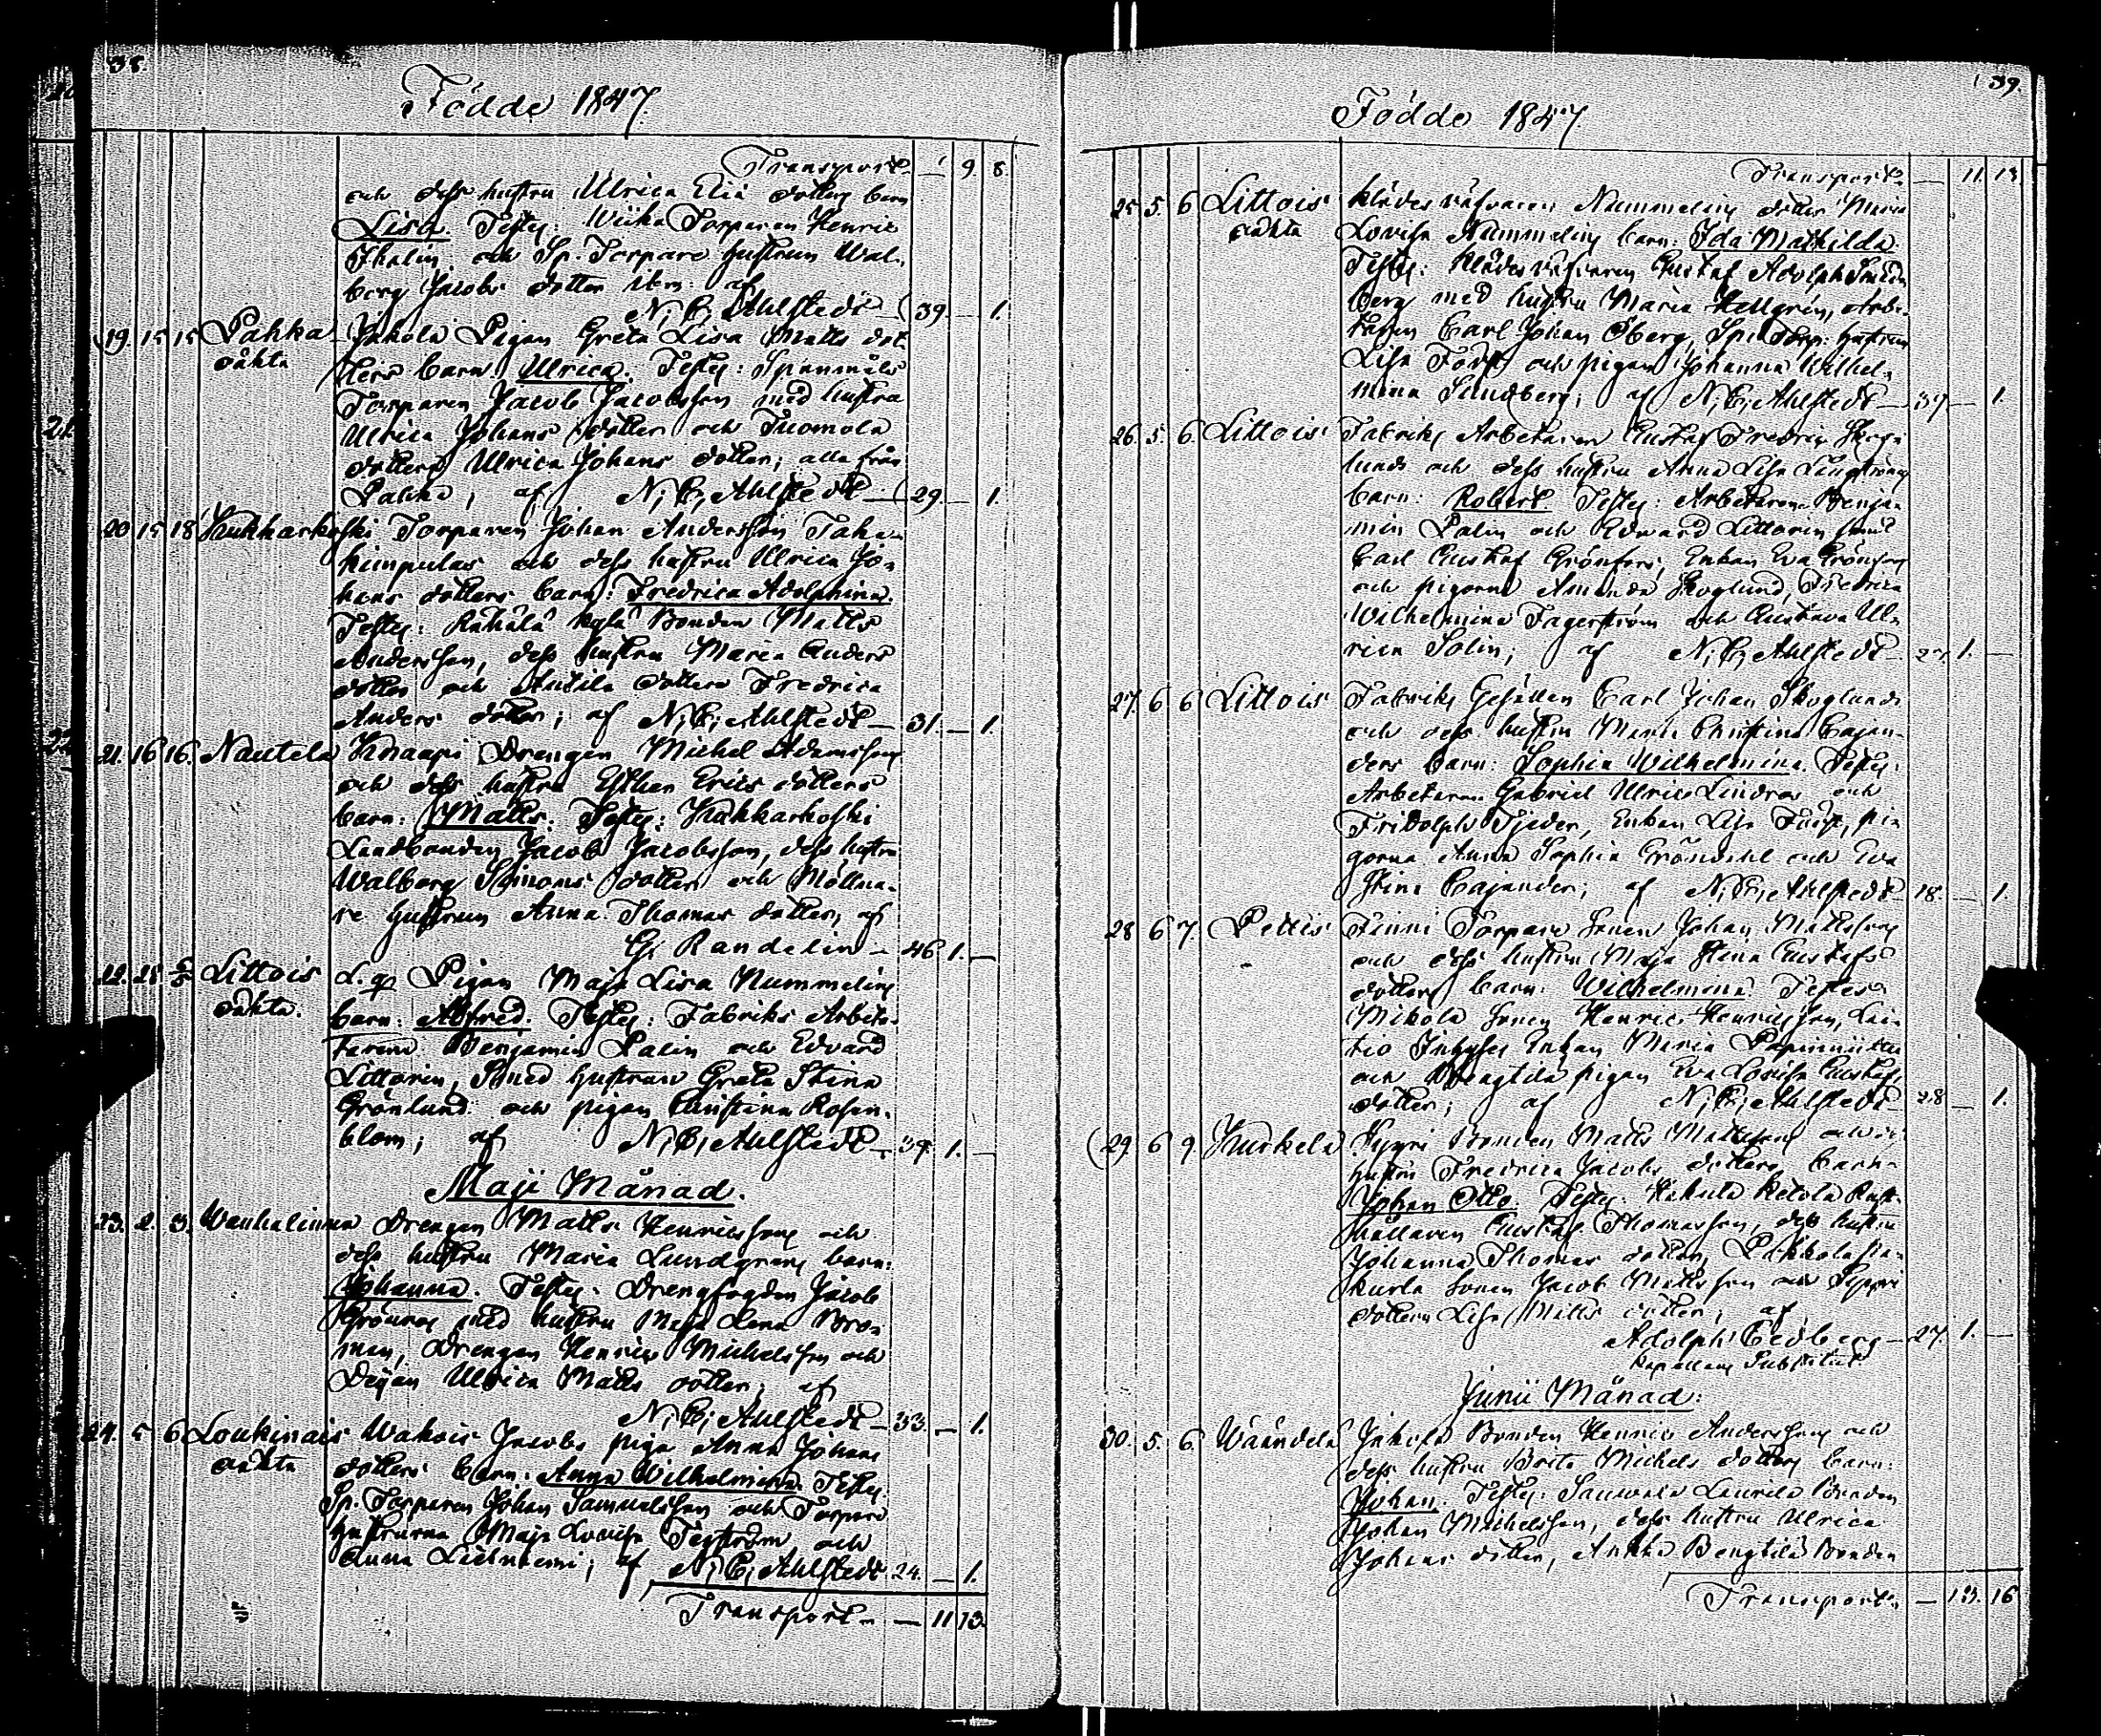 38.
Födde 1847.
Transport — 9. 8.
och dess hustru Ulrica Elia dotters barn
Lisa. Testes: Torparen Henric
Thalin och Sp. Torpare hustrun Wal-
borg Jacobs dotter af
N. C. Ahlstedt — 39. — 1.
19. 15 15 Pahka Jakola Pigan Greta Lisa Matts dot-
oäkta ters barn Ulrica. Testes: Spånmåls
Torparen Jacob Jacobsson med hustru
Ulrica Johans dotter och Tuomola
dotteren Ulrica Johans dotter; alla från
Pahka; af N. C. Ahlstedt — 29. — 1.
20 15 18 Kukkarkoski Torparen Johan Andersson Taka-
kimpulas och dess hustru Ulrica Jo-
hans dotters barn: Fredrica Adolphina.
Testes: Rähälä Bonden Matts
Andersson, dess hustru Maria Anders
dotter och Anttila dotteren Fredrica
Anders dotter; af N. C. Ahlstedt — 31. — 1.
21. 16 16. Nautela Knaapi Drengen Michel Adamsson
och dess hustru Esther Erics dotters
barn: Matts. Testes: Kukkarkoski
Landbonden Jacob Jacobsson, dess hustru
Walborg Simons dotter och Möllna-
re hustrun Anna Thomas dotter, af
G. Randelin — 46 1. —
22. 28. Littois Pigan Maja Lisa Nummelins
oäkta. barn: Alfred. Testes: Fabriks Arbeta-
rarene Benjamin Palin och Edvard
Littorin, Smed hustrun Greta Stina
Grönlund och pigan Christina Rosen-
blom; af N. C. Ahlstedt — 39. 1. —
Maji Månad.
23. 2. 3. Wanhalinna Drengen Matts Henricsson och
dess hustru Maria Lundgrens barn:
Johanna. Testes: Drengfogden Jacob
Grönroos med hustru Maja Lena Bro-
man, Drengen Henric Michelsson och
Dejan Ulrica Matts dotter; af
N. C. Ahlstedt — 33. — 1.
24. 5 6 Loukinais Wakois Jacobs piga Anna Johans
oäkta dotters barn: Anna Wilhelmina. Testes:
Sp. Torparen Johan Samuelsson och Torpare
hustrurna Maja Lovisa Tegström och
Anna Liehniemi; af N. C. Ahlstedt 24. — 1.
Transport — 11 13.
39.
Födde 1847
Transport — 11. 13.
25 5. 6 Littois Klädesväfvaren Nummelins dotter Maria
oäkta Lovisa Nummelins barn: Ida Mathilda.
Testes: Klädesväfvaren Gustaf Adolph
berg med hustru Maria Hellgrén, Arbe-
taren Carl Johan Öberg, Sp. Torp. hustrun
Lisa och pigan Johanna Wilhel-
mina Sundberg; af N. C. Ahlstedt — 37. — 1.
26. 5. 6. Littois Fabriks Arbetaren Gustaf Fredric Skog-
lunds och dess hustru Anna Lisa Ljungströms
barn: Robert. Testes: Arbetarene Benja-
min Palin och Edward Littorin
Carl Gustaf Grönfors, Enkan Eva Grönfors
och pigorna Amanda Skoglund, Fredrica
Wilhelmina Fagerström och Gustava Ul-
rica Solin; af N. C. Ahlstedt — 27. 1. —
27. 6 6 Littois Fabriks Gesällen Carl Johan Skoglunds
och dess hustru Maria Christina Cajan-
ders barn: Sophia Wilhelmina. Testes:
Arbetaren Gabriel Ulric Lindroos och
Fridolph Tjeder, Enkan Lisa pi-
gorna Anna Sophia Gröndahl och Eva
Stina Cajander; af N. C. Ahlstedt — 18. — 1.
28 6 7. Pettis Finni Torpare Sonen Johan Mattsson
och dess hustru Maja Stina Gustafs
dotters barn: Wilhelmina. Testes:
Mikola Sonen Henric Henricsson,
Inhyses Enkan Maria
och Bengtilä pigan Eva Lovisa Gustafs
dotter; af N. C. Ahlstedt — 28 — 1.
29. 6 9. Kurkela Bonden Matts Mattsson och
hustru Fredrica Jacobs dotters barn:
Johan Otto. Testes: Ketola Rust-
hållaren Gustaf Thomasson, dess hustru
Johanna Thomas dotter,
kurla Sonen Jacob Mattsson och Seppä
dotteren Lisa Matts dotter; af
Adolph Cedberg — 27. 1. —
Kapellans Substitut
Junii Månad:
30. 5. 6. Wäändelä Jakola Bonden Henric Andersson och
dess hustru Brita Michels dotters barn:
Johan. Testes: Sauwala Laurila Bonden
Johan Michelsson, dess hustru Ulrica
Johans dotter, Bengtilä Bonden
Transport — 13. 16